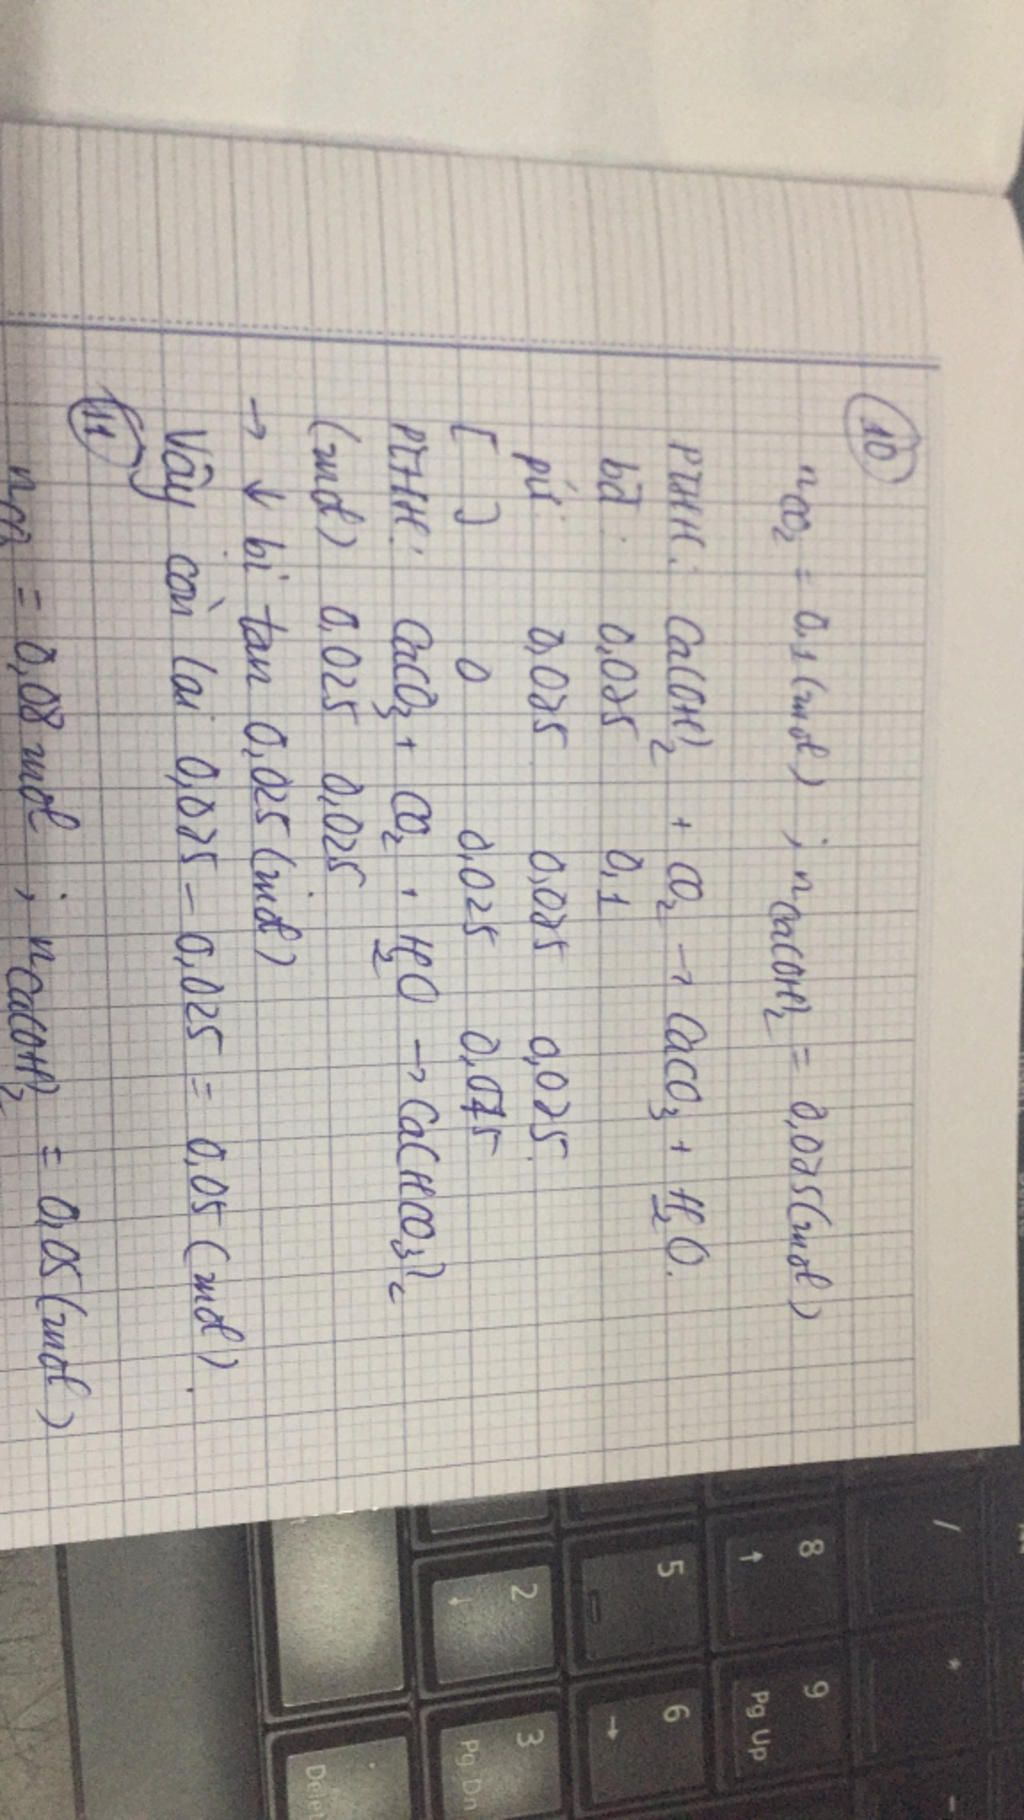 10
nCO₂ = 0,1 (mol) ; nCa(OH)₂ = 0,075 (mol)
PTHH: Ca(OH)₂ + CO₂ → CaCO₃ + H₂O.
bđ: 0,075 0,1
pứ: 0,075 0,075 0,075.
[ ] 0 0,025 0,075
PTHH: CaCO₃ + CO₂ + H₂O → Ca(HCO₃)₂
(mol) 0,025 0,025
→ ↓ bị tan 0,025 (mol)
Vậy còn lại 0,075 - 0,025 = 0,05 (mol).
11
nCO₂ = 0,08 mol ; nCa(OH)₂ = 0,05 (mol)
/ * -
8 ↑ 9 Pg Up
5 6 →
2 ↓ 3 Pg Dn
. Delet